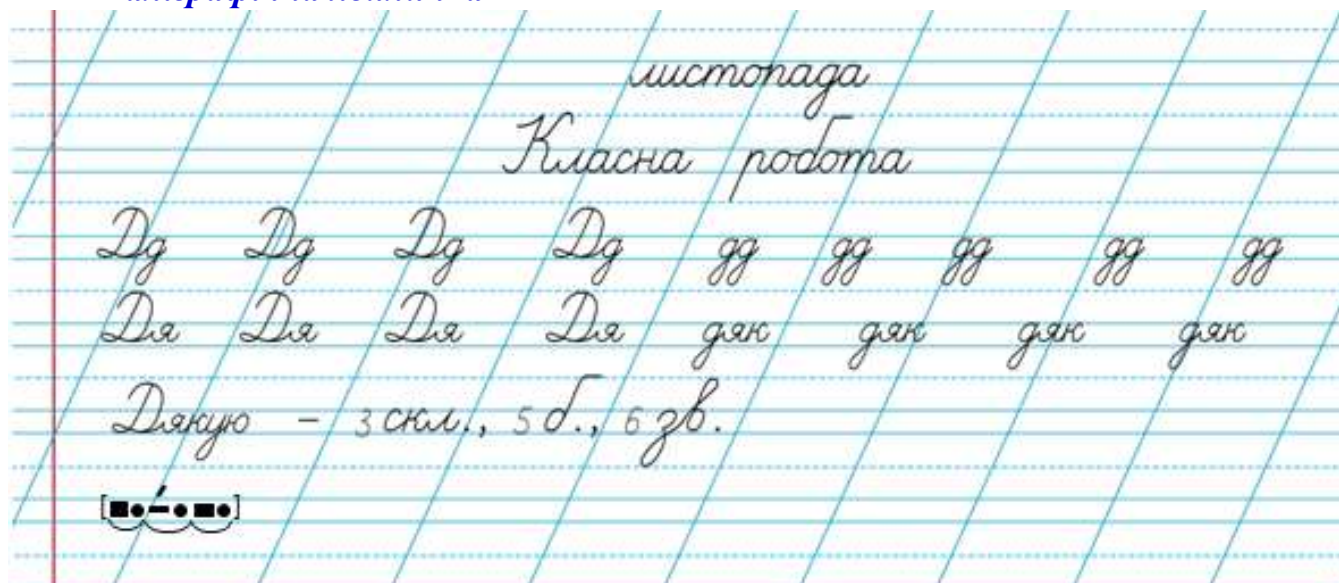 листопада
Класна робота
Дд Дд Дд Дд дд дд дд дд дд
Дя Дя Дя Дя дяк дяк дяк дяк
Дякую – 3 скл., 5 б., 6 зв.